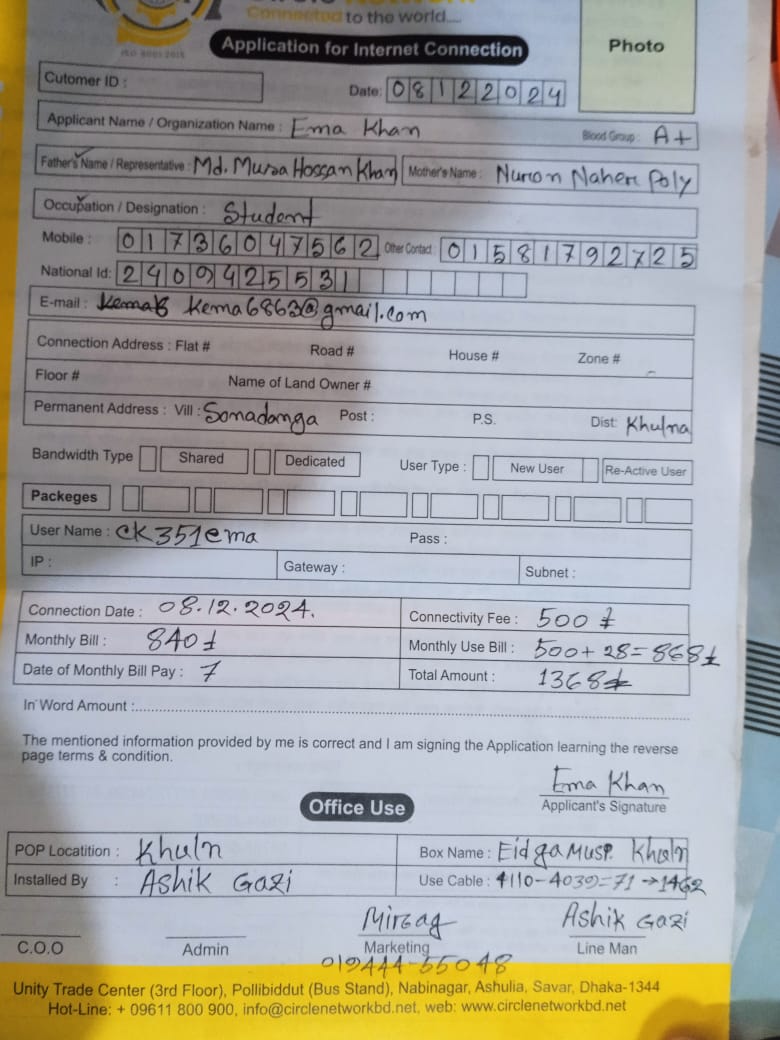 Connected to the world....
ISO 9001:2015
Application for Internet Connection
Photo
Cutomer ID :
Date: 08122024
Applicant Name / Organization Name : Ema Khan Blood Group : A+
Father's Name / Representative : Md. Mursa Hossan Khan Mother's Name : Nuron Naher Poly
Occupation / Designation : Student
Mobile : 01736047562 Other Contact : 01581792725
National Id: 2409425531
E-mail : kema6863@gmail.com
Connection Address : Flat # Road # House # Zone #
Floor # Name of Land Owner #
Permanent Address : Vill : Sonadanga Post : P.S. Dist: Khulna
Bandwidth Type Shared Dedicated User Type : New User Re-Active User
Packeges
User Name : ck351ema Pass :
IP : Gateway : Subnet :
Connection Date : 08.12.2024. Connectivity Fee : 500/-
Monthly Bill : 840/- Monthly Use Bill : 500+28=868/-
Date of Monthly Bill Pay : 7 Total Amount : 1368/-
In Word Amount :
The mentioned information provided by me is correct and I am signing the Application learning the reverse
page terms & condition.
Ema Khan
Applicant's Signature
Office Use
POP Locatition : Khuln Box Name : Eidga Musp. Khuln
Installed By : Ashik Gazi Use Cable : 4110-4039=71→1462
Ashik Gazi
C.O.O Admin Marketing Line Man
019444-55048
Unity Trade Center (3rd Floor), Pollibiddut (Bus Stand), Nabinagar, Ashulia, Savar, Dhaka-1344
Hot-Line: + 09611 800 900, info@circlenetworkbd.net, web: www.circlenetworkbd.net